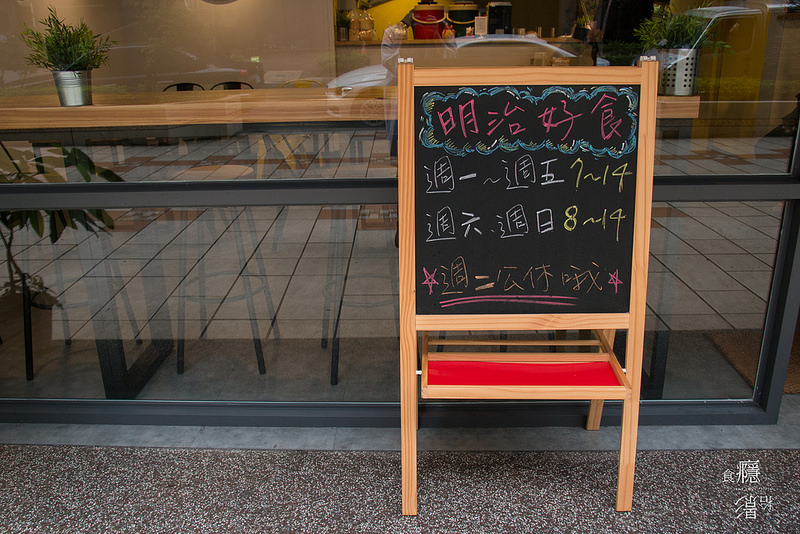 明治好食
週一~週五 7~14
週六.週日 8~14
☆週二公休哦☆
食癮